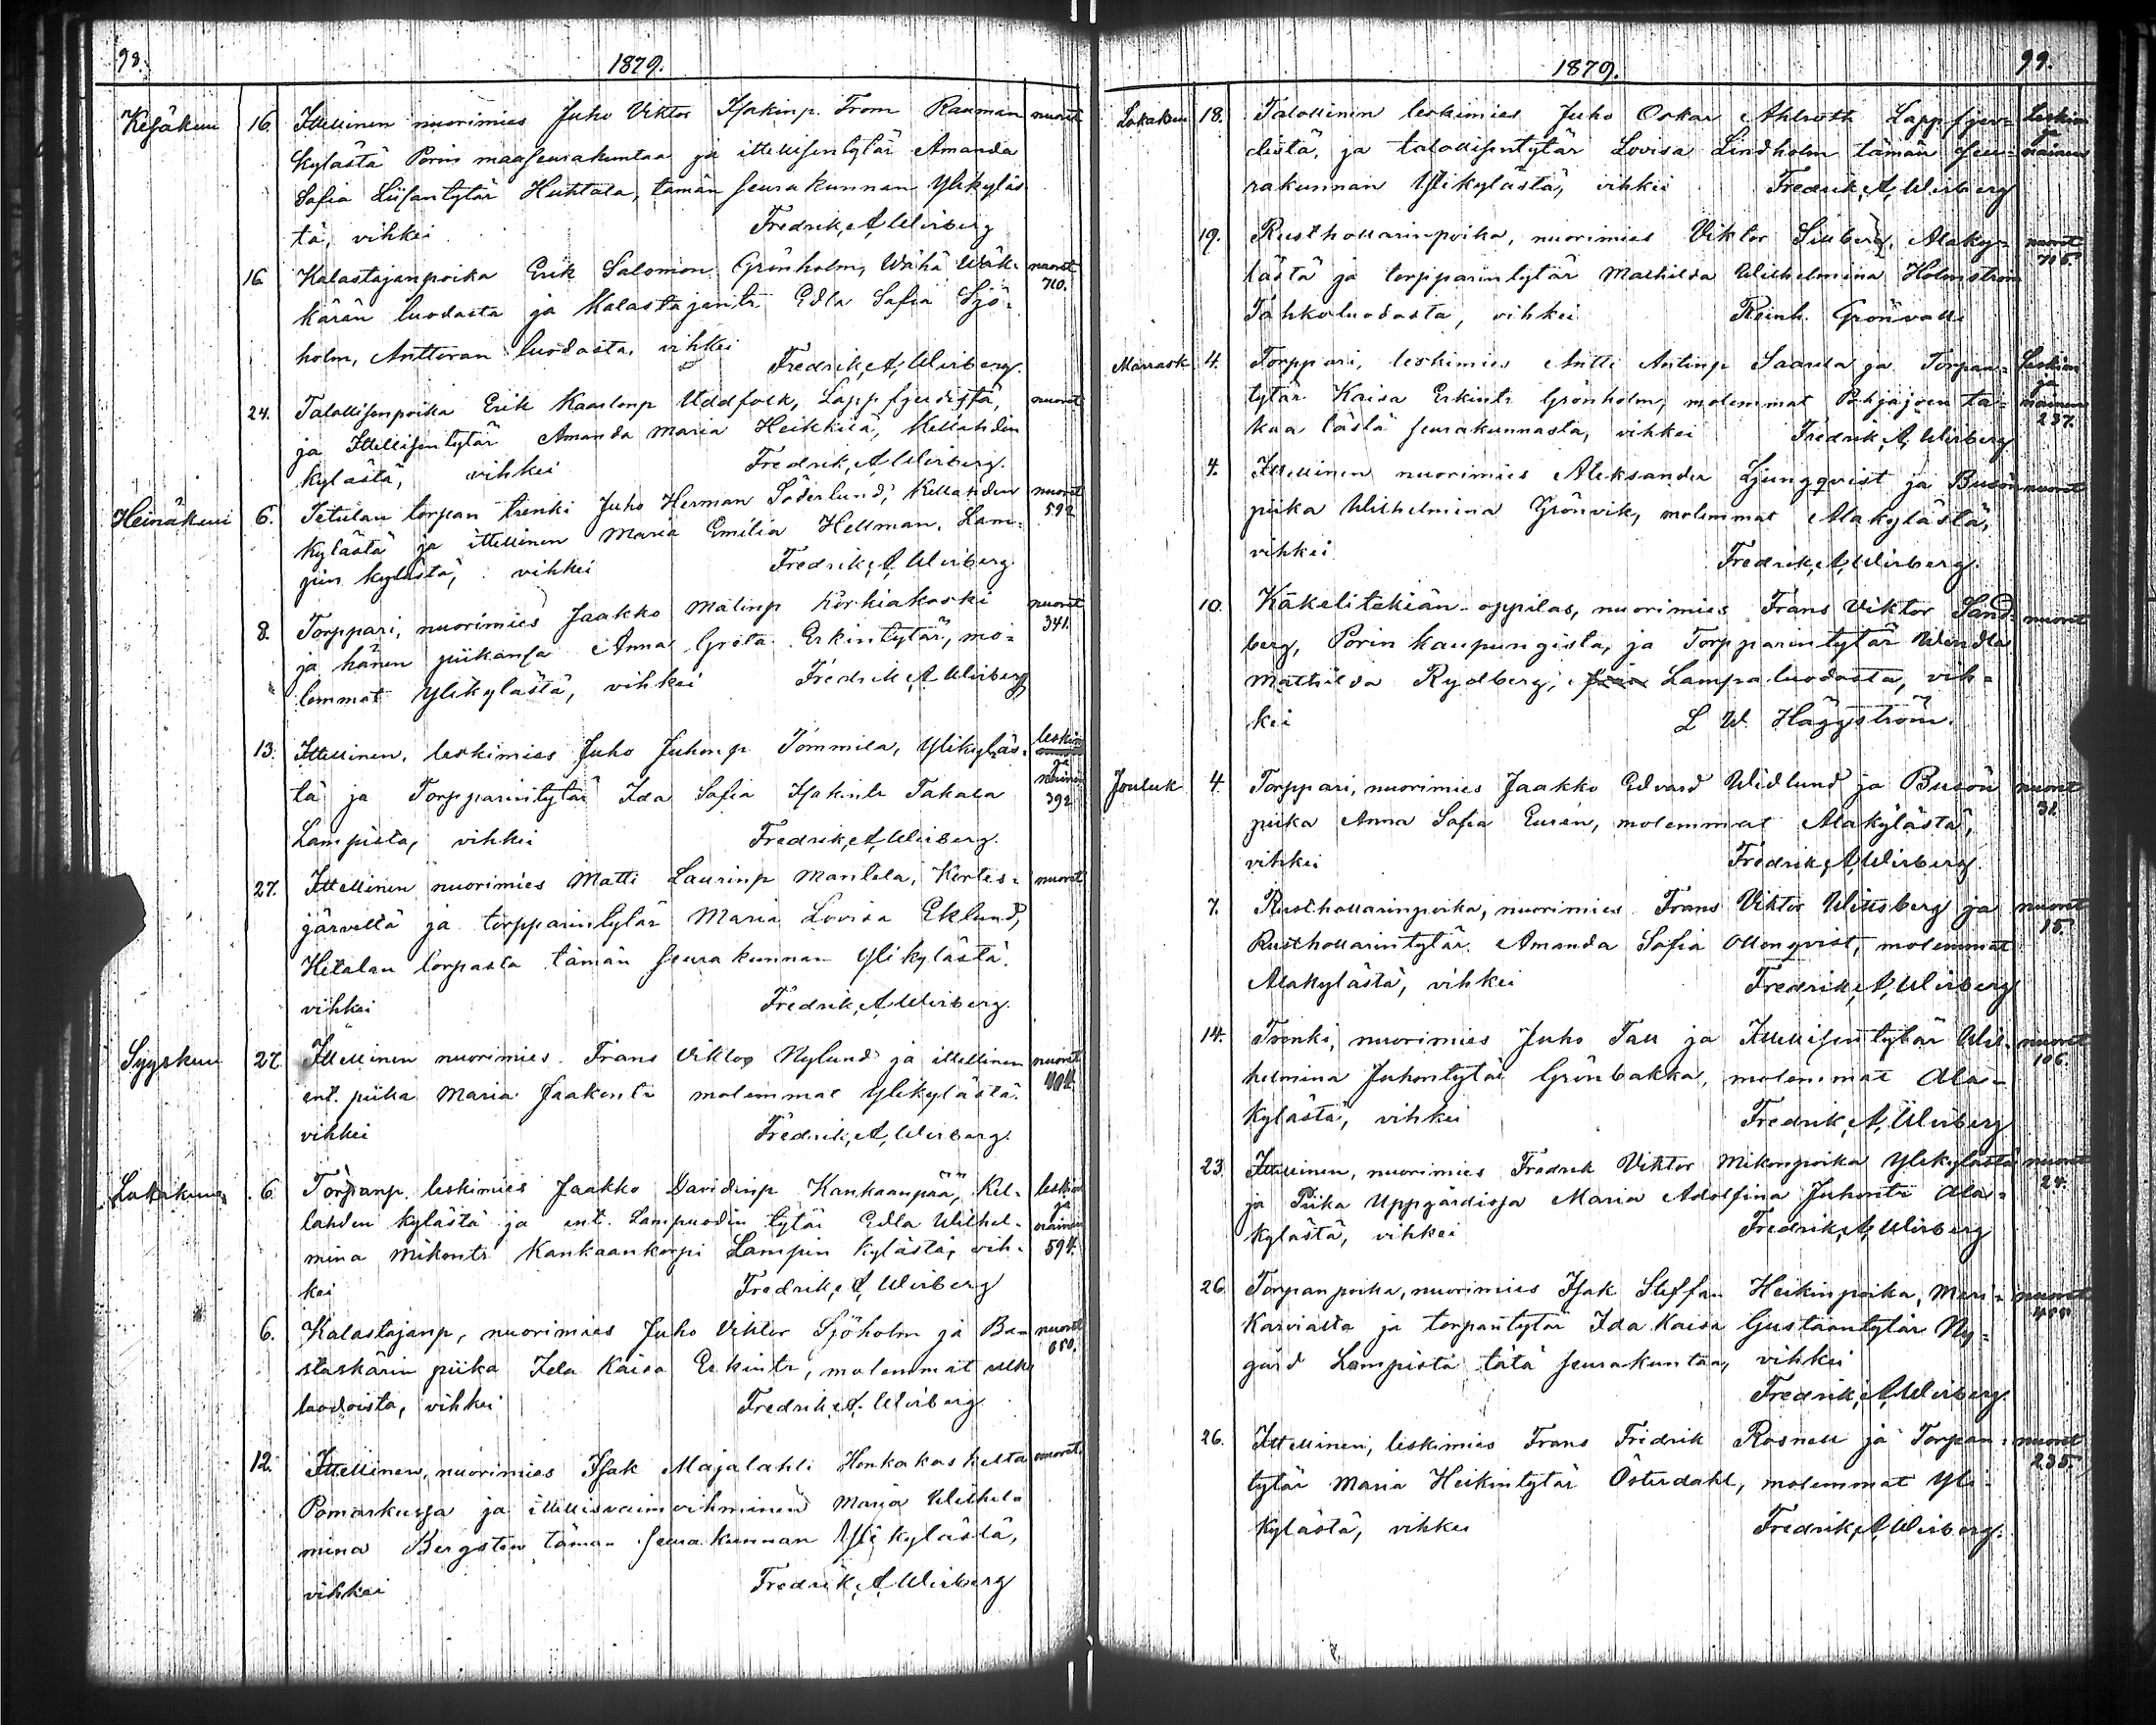 98.
1879.
Kesäkuu 16. Ittellinen nuorimies Juho Viktor Isakinp. From Rauman nuoret
kylästä Porin maaseurakuntaa ja ittellisentytär Amanda
Sofia Liisantytär Huhtala, tämän seurakunnan Ylikyläs
tä, vihkei Fredrik, A, Wirberg
16 Kalastajanpoika Erik Salomon Grönholm, Wähä Wäk- nuoret
kärän luodosta ja Kalastajantr Edla Sofia Sjö- 710.
holm, Anttooran luodosta, vihkei Fredrik, A, Wirberg.
24. Talollisenpoika Erik Kaarlonp Uddfolk, Lappfjerdistä, nuoret
ja Ittellisentytär Amanda Maria Heikkilä, Kellahden
kylästä, vihkei Fredrik, A Wirberg.
Heinäkuu 6. Tetulan torpan trenki Juho Herman Söderlund, Kellahden nuoret
kylästä ja ittellinen Maria Emilia Hellman, Lam- 592
pin kylästä, vihkei Fredrik, A, Wirberg.
8. Torppari, nuorimies Jaakko Matinp Körkiakoski nuoret
ja hänen piikansa Anna Greta Erkintytär, mo- 341.
lemmat Ylikylästä, vihkei Fredrik A Wirberg
13. Ittellinen, leskimies Juho Juhonp Tommila, Ylikyläs- leskim
tä ja Torpparintytär Ida Sofia Isakintr Takala ja nainen 392
Lampista, vihkei Fredrik, A, Wirberg.
27. Ittellinen nuorimies Matti Laurinp Mantela, Kertes- nuoret
järveltä ja torpparintytär Maria Lovisa Eklund,
Hietalan torpasta tämän seurakunnan Ylikylästä.
vihkei Fredrik, A Wirberg.
Syyskuu 27. Ittellinen nuorimies Frans Viktor Nylund ja ittellinen nuoret
ent. piika Maria Jaakontr molemmat Ylikylästä. 404.
vihkei Fredrik, A, Wirberg.
Lokakuu 6 Torpanp. leskimies Jaakko Davidinp Kankaanpää, Kel- leskim
lahden kylästä ja ent. Lampuodin tytär Edla Wilhel- ja nainen
mina Mikontr Kankaankorpi Lampin kylästä, vih- 594.
kei Fredrik, A, Wirberg
6. Kalastajanp, nuorimies Juho Viktor Sjöholm ja Ba- nuoret
staskärin piika Ida Kaisa Erkintr, molemmat ulko 680.
luodoista, vihkei Fredrik, A. Wirberg
12. Ittellinen, nuorimies Isak Majalahti Honkakoskelta nuoret
Pomarkussa ja ittellisvaimoihminen Maria Wilhel-
mina Bergsten tämän seurakunnan Ylikylästä,
vihkei Fredrik, A, Wirberg
1879. 99.
Lokakuu 18. Talollinen leskimies Juho Oskar Ahlroth Lappfjer- Leskim
distä, ja talollisentytär Lovisa Lindholm tämän seu- ja nainen
rakunnan Ylikylästä, vihkei Fredrik, A, Wirberg
19. Rusthollarinpoika, nuorimies Viktor Sillberg, Alaky- nuoret
lästä ja torpparintytär Mathilda Wilhelmina Holmström
Tahkoluodosta, vihkei Reinh. Grönvall.
Marrask 4. Torppari, leskimies Antti Antinp Saarela ja Torpan- Leskim
tytär Kaisa Erkintr Grönholm, molemmat Pohjajoen ta- ja nainen
kaa tästä seurakunnasta, vihkei Fredrik, A, Wirberg 237.
4. Ittellinen nuorimies Aleksander Ljungqvist ja Busön nuoret
piika Wilhelmina Grönvik, molemmat Alakylästä,
vihkei Fredrik, A, Wirberg.
10. Käkelitekiän-oppilas, nuorimies Frans Viktor Sand- nuoret
berg, Porin kaupungista, ja Torpparintytär Wendla
Mathilda Rydberg, Lampaluodosta, vih-
kei L W. Häggström.
Jouluk 4. Torppari, nuorimies Jaakko Edvard Widlund ja Busön nuoret
piika Anna Sofia Eurén, molemmat Alakylästä, 31.
vihkei Fredrik, A, Wirberg.
7. Rusthollarinpoika, nuorimies Frans Viktor Willsberg ja nuoret
Rusthollarintytär Amanda Sofia Ollonqvist, molemmat 15.
Alakylästä, vihkei Fredrik, A, Wirberg
14. Trenki, nuorimies Juho Tall ja Ittellisentytär Wil- nuoret
helmina Juhontytär Grönbakka, molemmat Ala- 106.
kylästä, vihkei Fredrik, A, Wirberg
23. Ittellinen, nuorimies Fredrik Viktor Mikonpoika Ylikylästä nuoret
ja Piika Uppgärdissa Maria Adolfina Juhontr Ala- 24.
kylästä, vihkei Fredrik, A, Wirberg
26 Torpanpoika, nuorimies Isak Steffan Heikinpoika, Meri- nuoret
karvialta ja torpantytär Ida Kaisa Gustaantytär Ny-
gård Lampista tätä seurakuntaa, vihkei
Fredrik, A, Wirberg.
26. Ittellinen, leskimies Frans Fridrik Rosnell ja Torpan- nuoret
tytär Maria Heikintytär Österdahl, molemmat Yli- 235.
kylästä, vihkei Fredrik, A, Wirberg.